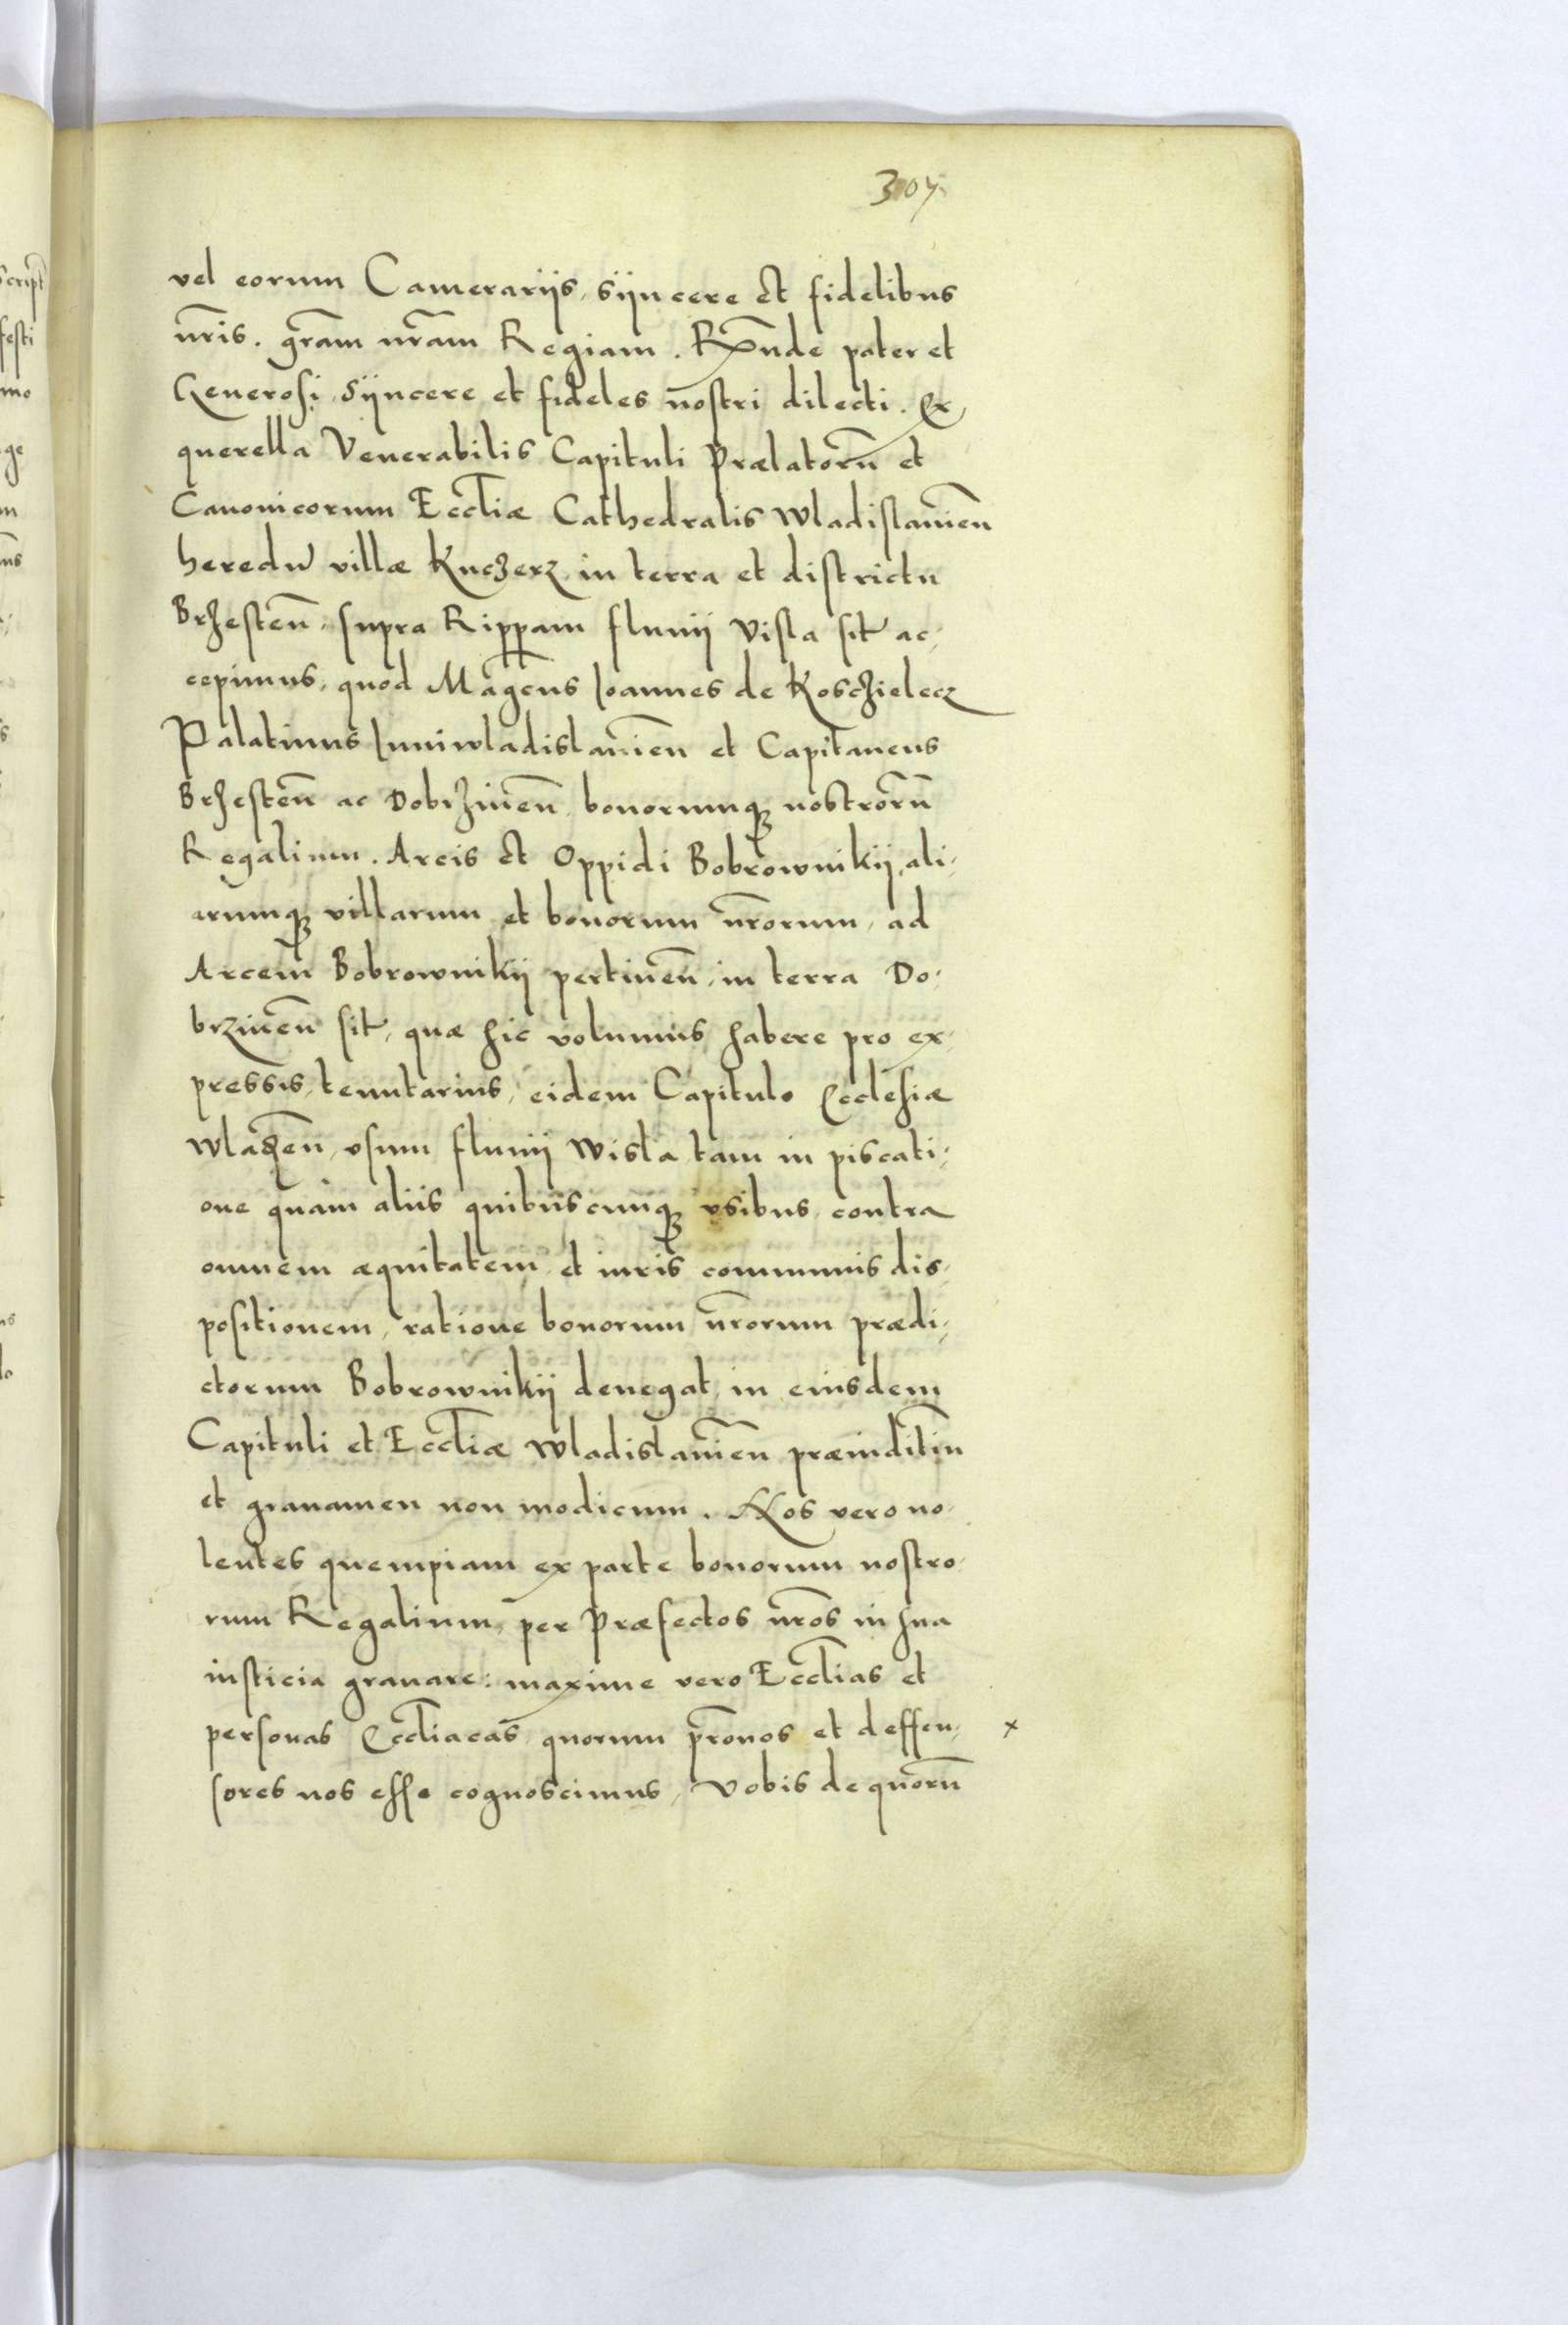 307
vel eorum Camerariis, siincere et fidelibus
nr̃is. gr̃am nr̃am Regiam. Rx̃nde pater et
Generosi, siincere et fideles nostri dilecti. Ex
querella Venerabilis Capituli Prælatorũ et
Canonicorum Eccl̃iæ Cathedralis Wladislauieñ
heredũ villæ Kuczerz, in terra et districtu
Brzesteñ, supra Rippam fluuii Visla sit̃ ac,
cepimus, quod Mag̃cus Ioannes de Kosczielecz
Palatinus Iuniwladislauieñ et Capitaneus
Brzesteñ ac Dobrzineñ, bonorumqꝫ nostrorũ
Regalium. Arcis et Oppidi Bobrownikii, ali,
arumqꝫ villarum et bonorum nr̃orum, ad
Arcem Bobrownikii pertineñ, in terra Do,
brzineñ sit̃, quæ hic volumus habere pro ex,
pressis, tenutarius, eidem Capitulo Ecclesiæ
Wladieñ, vsum fluuii Wisla tam in piscati,
one quàm aliis quibuscunqꝫ vsibus, contra
omnem æquitatem, et iuris communis dis,
positionem, ratione bonorum nr̃orum prædi,
ctorum Bobrownikii denegat, in eiusdem
Capituli et Eccl̃iæ Wladislauieñ præiuditiũ
et grauamen non modicum. Nos vero no,
lentes quempiam ex parte bonorum nostro,
rum Regalium, per Præfectos nr̃os in sua
iusticia grauare: maxime vero Eccl̃ias et
personas Eccl̃iacas, quorum pr̃onos et deffen, x
sores nos esse cognoscimus, Vobis de quorũ